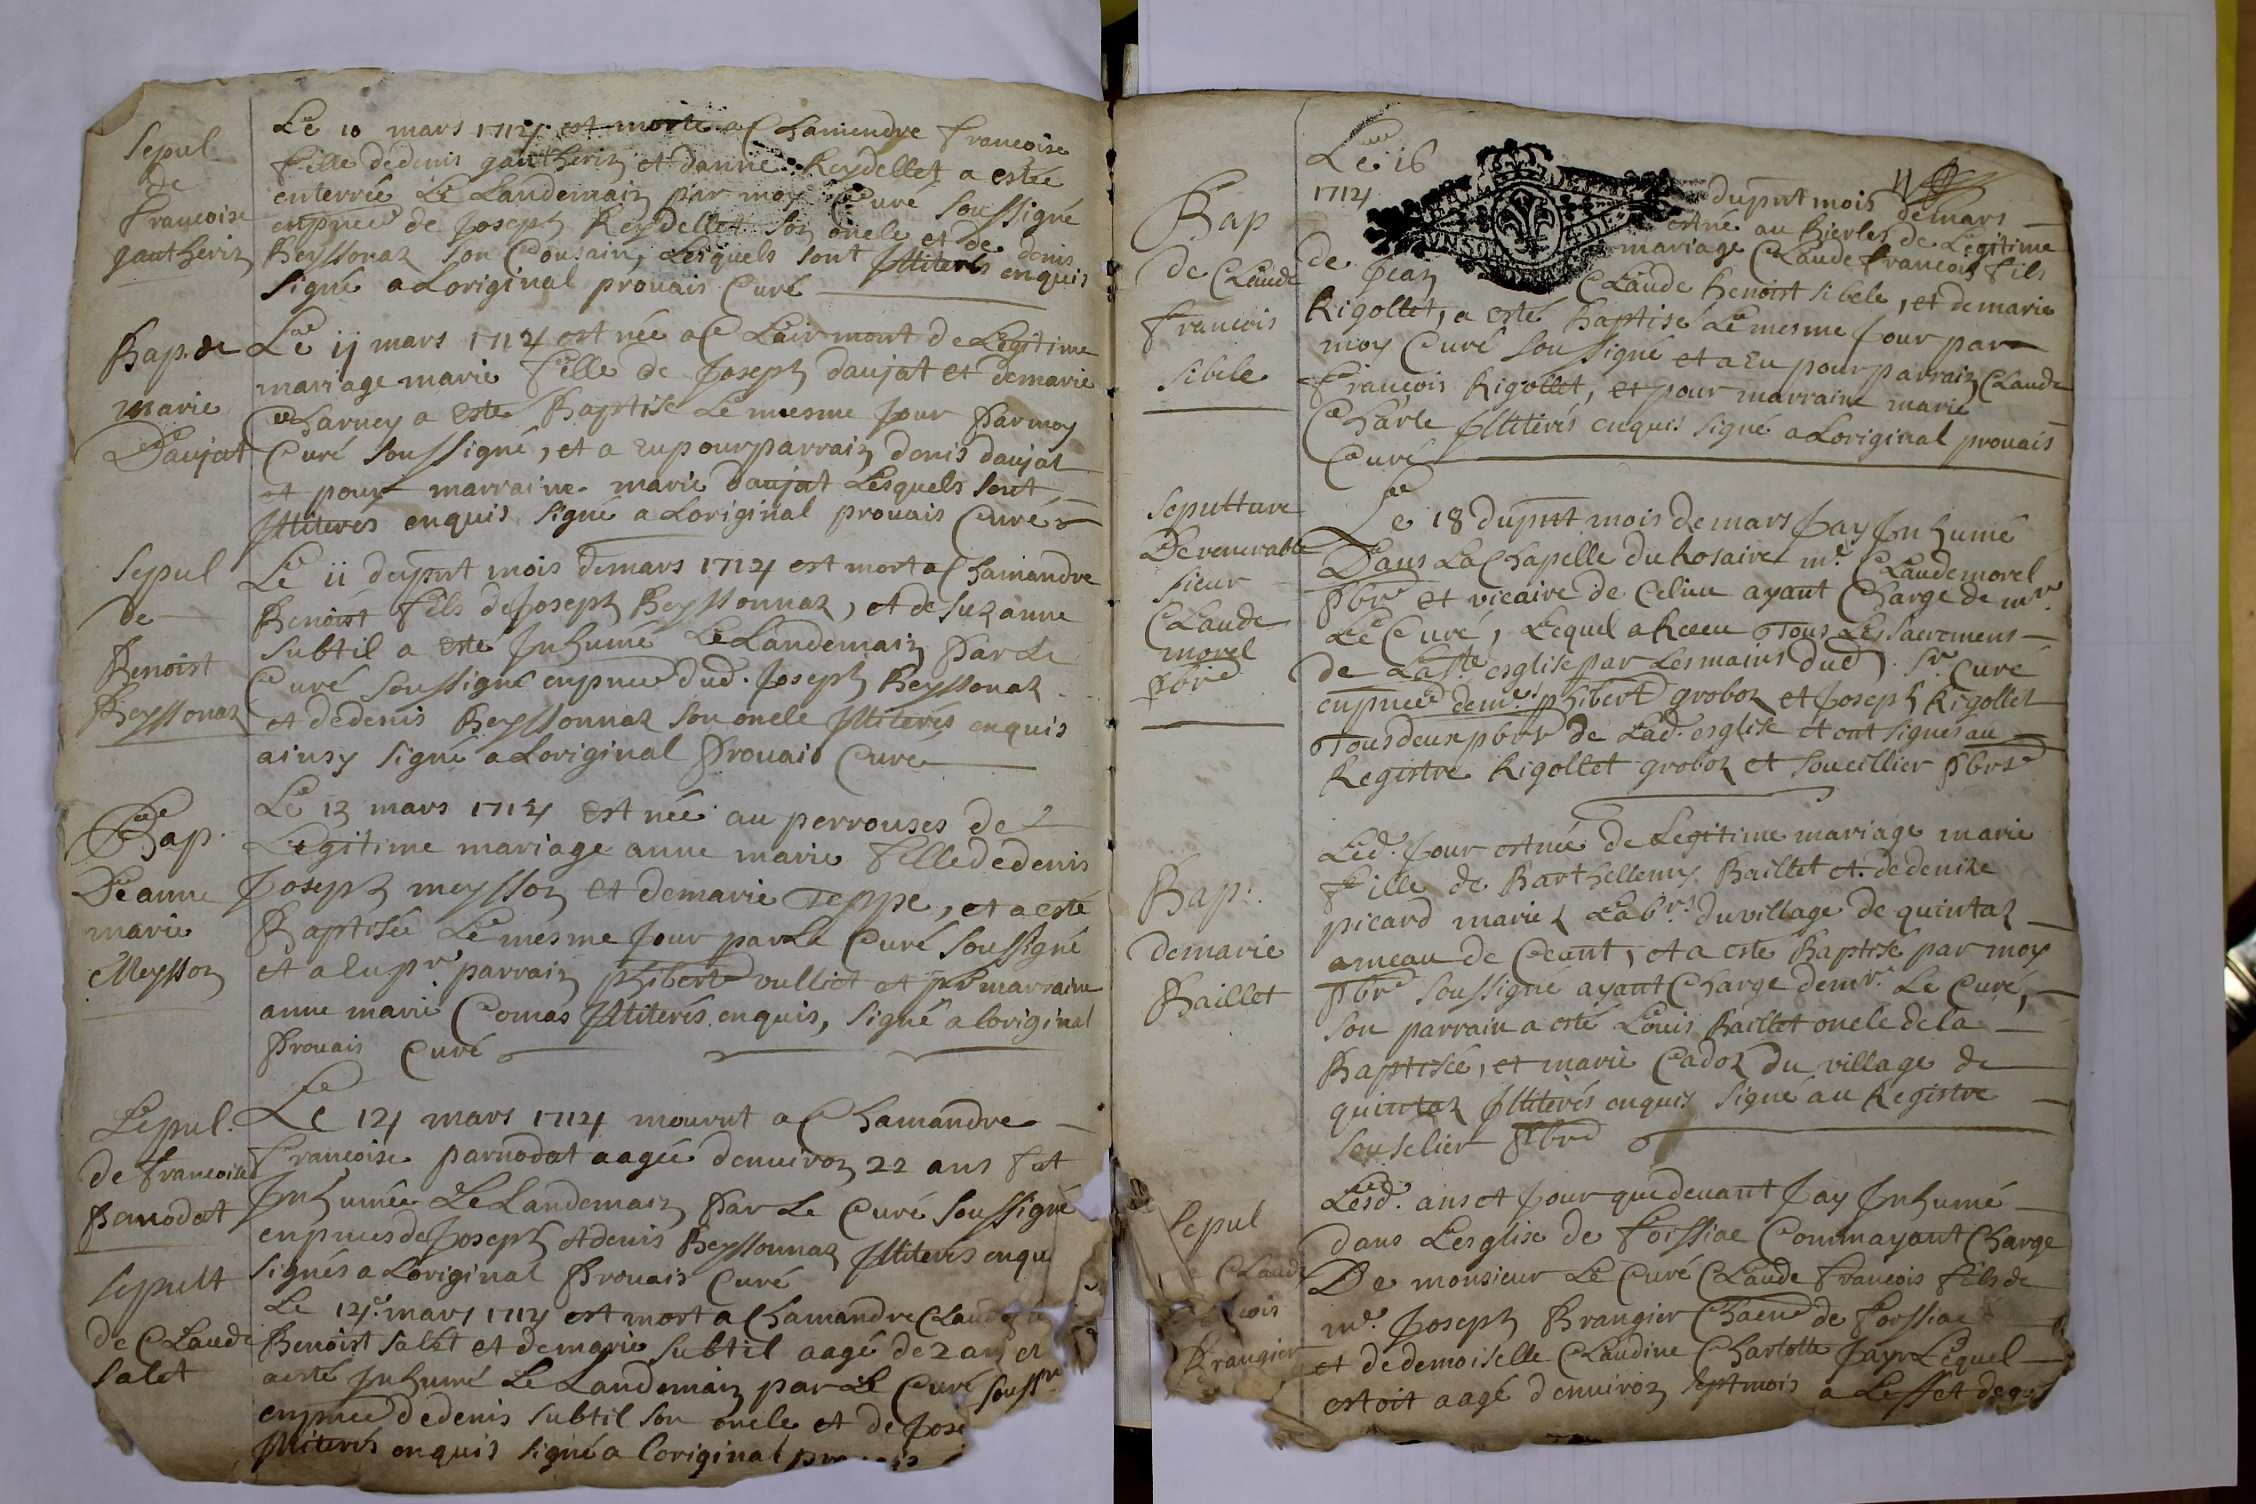 Sepul
de
francoise
gautherin
Le 10 mars 1714 est morte a Chamendre francoise
fille dedenis gautherin et danne Reydellet a estée
enterrée Le Landemain par moy Curé soussigné
enpnce de Joseph Reydellet son oncle et de denis
Beyssonaz son Cousain, Lesquels sont Illiterés enquis
signé a Loriginal prouais Curé
Bap. de
marie
Daujat
Le 11 mars 1714 est née a Clairmont de Legitime
mariage marie fille de Joseph daujat et demarie
Charney a Esté Baptise Le mesme Jour Parmoy
Curé soussigné, et a Eu pour parrain denis daujat
et pour marraine marie daujat Lesquels sont
Illiterés enquis signé a Loriginal prouais Curé
Sepul
de
Benoist
Beyssonaz
Le 11 dupnt mois demars 1714 est mort a Chamandre
Benoist fils deJoseph Beyssonnaz, et de suzanne
subtil a esté Inhumé LeLandemain Par Le
Curé soussigné enpnce dud. Joseph Beyssonaz
et dedenis Beyssonnaz son oncle Illiterés enquis
ainsy signé a Loriginal Prouais Curé
Bap.
Deanne
marie
Meysson
Le 13 mars 1714 est née au perrouses de
Legitime mariage anne marie fille dedenis
Joseph meysson et demarie Teppe, et a esté
Baptisée Le mesme Jour par Le Curé soussigné
et a Eu pr parrain phibert vulliet et pr marraine
anne marie Comas Illiterés enquis, signé a loriginal
Prouais Curé
Sepul.
de francoise
Parnodat
Le 14 mars 1714 mourut a Chamandre
francoise parnodat aagée denuiron 22 ans fut
Inhumée LeLandemain Par Le Curé soussigné
enpnces deJoseph et denis Beyssonnaz Illiterés enqu
signés a Loriginal Prouais Curé
Sepult
de Claude
salet
Le 14e. mars 1714 est mort a Chamandre Claude
Benoist salet et demarie subtil aagé de 2 ans et
aesté Inhumé Le Landemain par Le Curé souss
enpnce dedenis subtil son oncle et de Jose
Illiterés enquis signé a loriginal
11
Bap
de Claude
francois
sibele
Le 16
1714
dupnt mois demars
est né au Bierles de Legitime
mariage Claude francois fils
de Jean Claude Benoist sibele, et demarie
Rigollet, a esté Baptisé Le mesme Jour par
moy Curé soussigné et a Eu pour parrain Claude
François Rigollet, et pour marraine marie
Charle Illiterés enquis signé a Loriginal prouais
Curé
Sepulture
De venerable
sieur
Claude
morel
pbre
Le 18 dupnt mois demars Jay Inhumé
Dans La Chapelle du Rosaire mre. Claude morel
Pbre et vicaire de Celieu ayant Charge de mr.
Le Curé, Lequel a Receu Tous Les sacremens
de La ste esglise par Lesmains dud. Sr. Curé
enpnce demes phibert groboz et Joseph Rigollet
Tousdeux pbrs de Lad. esglise et ont signés au
Registre Rigollet groboz et soucillier Pbre
Bap.
demarie
Baillet
Led. Jour est née de Legitime mariage marie
fille de Barthellemy Baillet et dedenize
picard mariez Labrs. duvillage de quintaz
ameau de Ceant, et a esté Baptise par moy
Pbre soussigné ayant Charge demr. Le Curé,
son parrain a esté Louis Baillet oncle dela
Baptisée, et marie Cadoz du village de
quintaz Illiterés enquis signé au Registre
souselier Pbre
Sepul
Claude
cois
Brangier
Lesd. ans et Jour quedeuant Jay Inhumé
dans Lesglise de foissiac Comm ayant Charge
De monsieur Le Curé Claude francois fils de
me. Joseph Brangier de foissiac
et dedemoiselle Claudine Charlotte Jayr Lequel
estoit aagé denuiron septmois